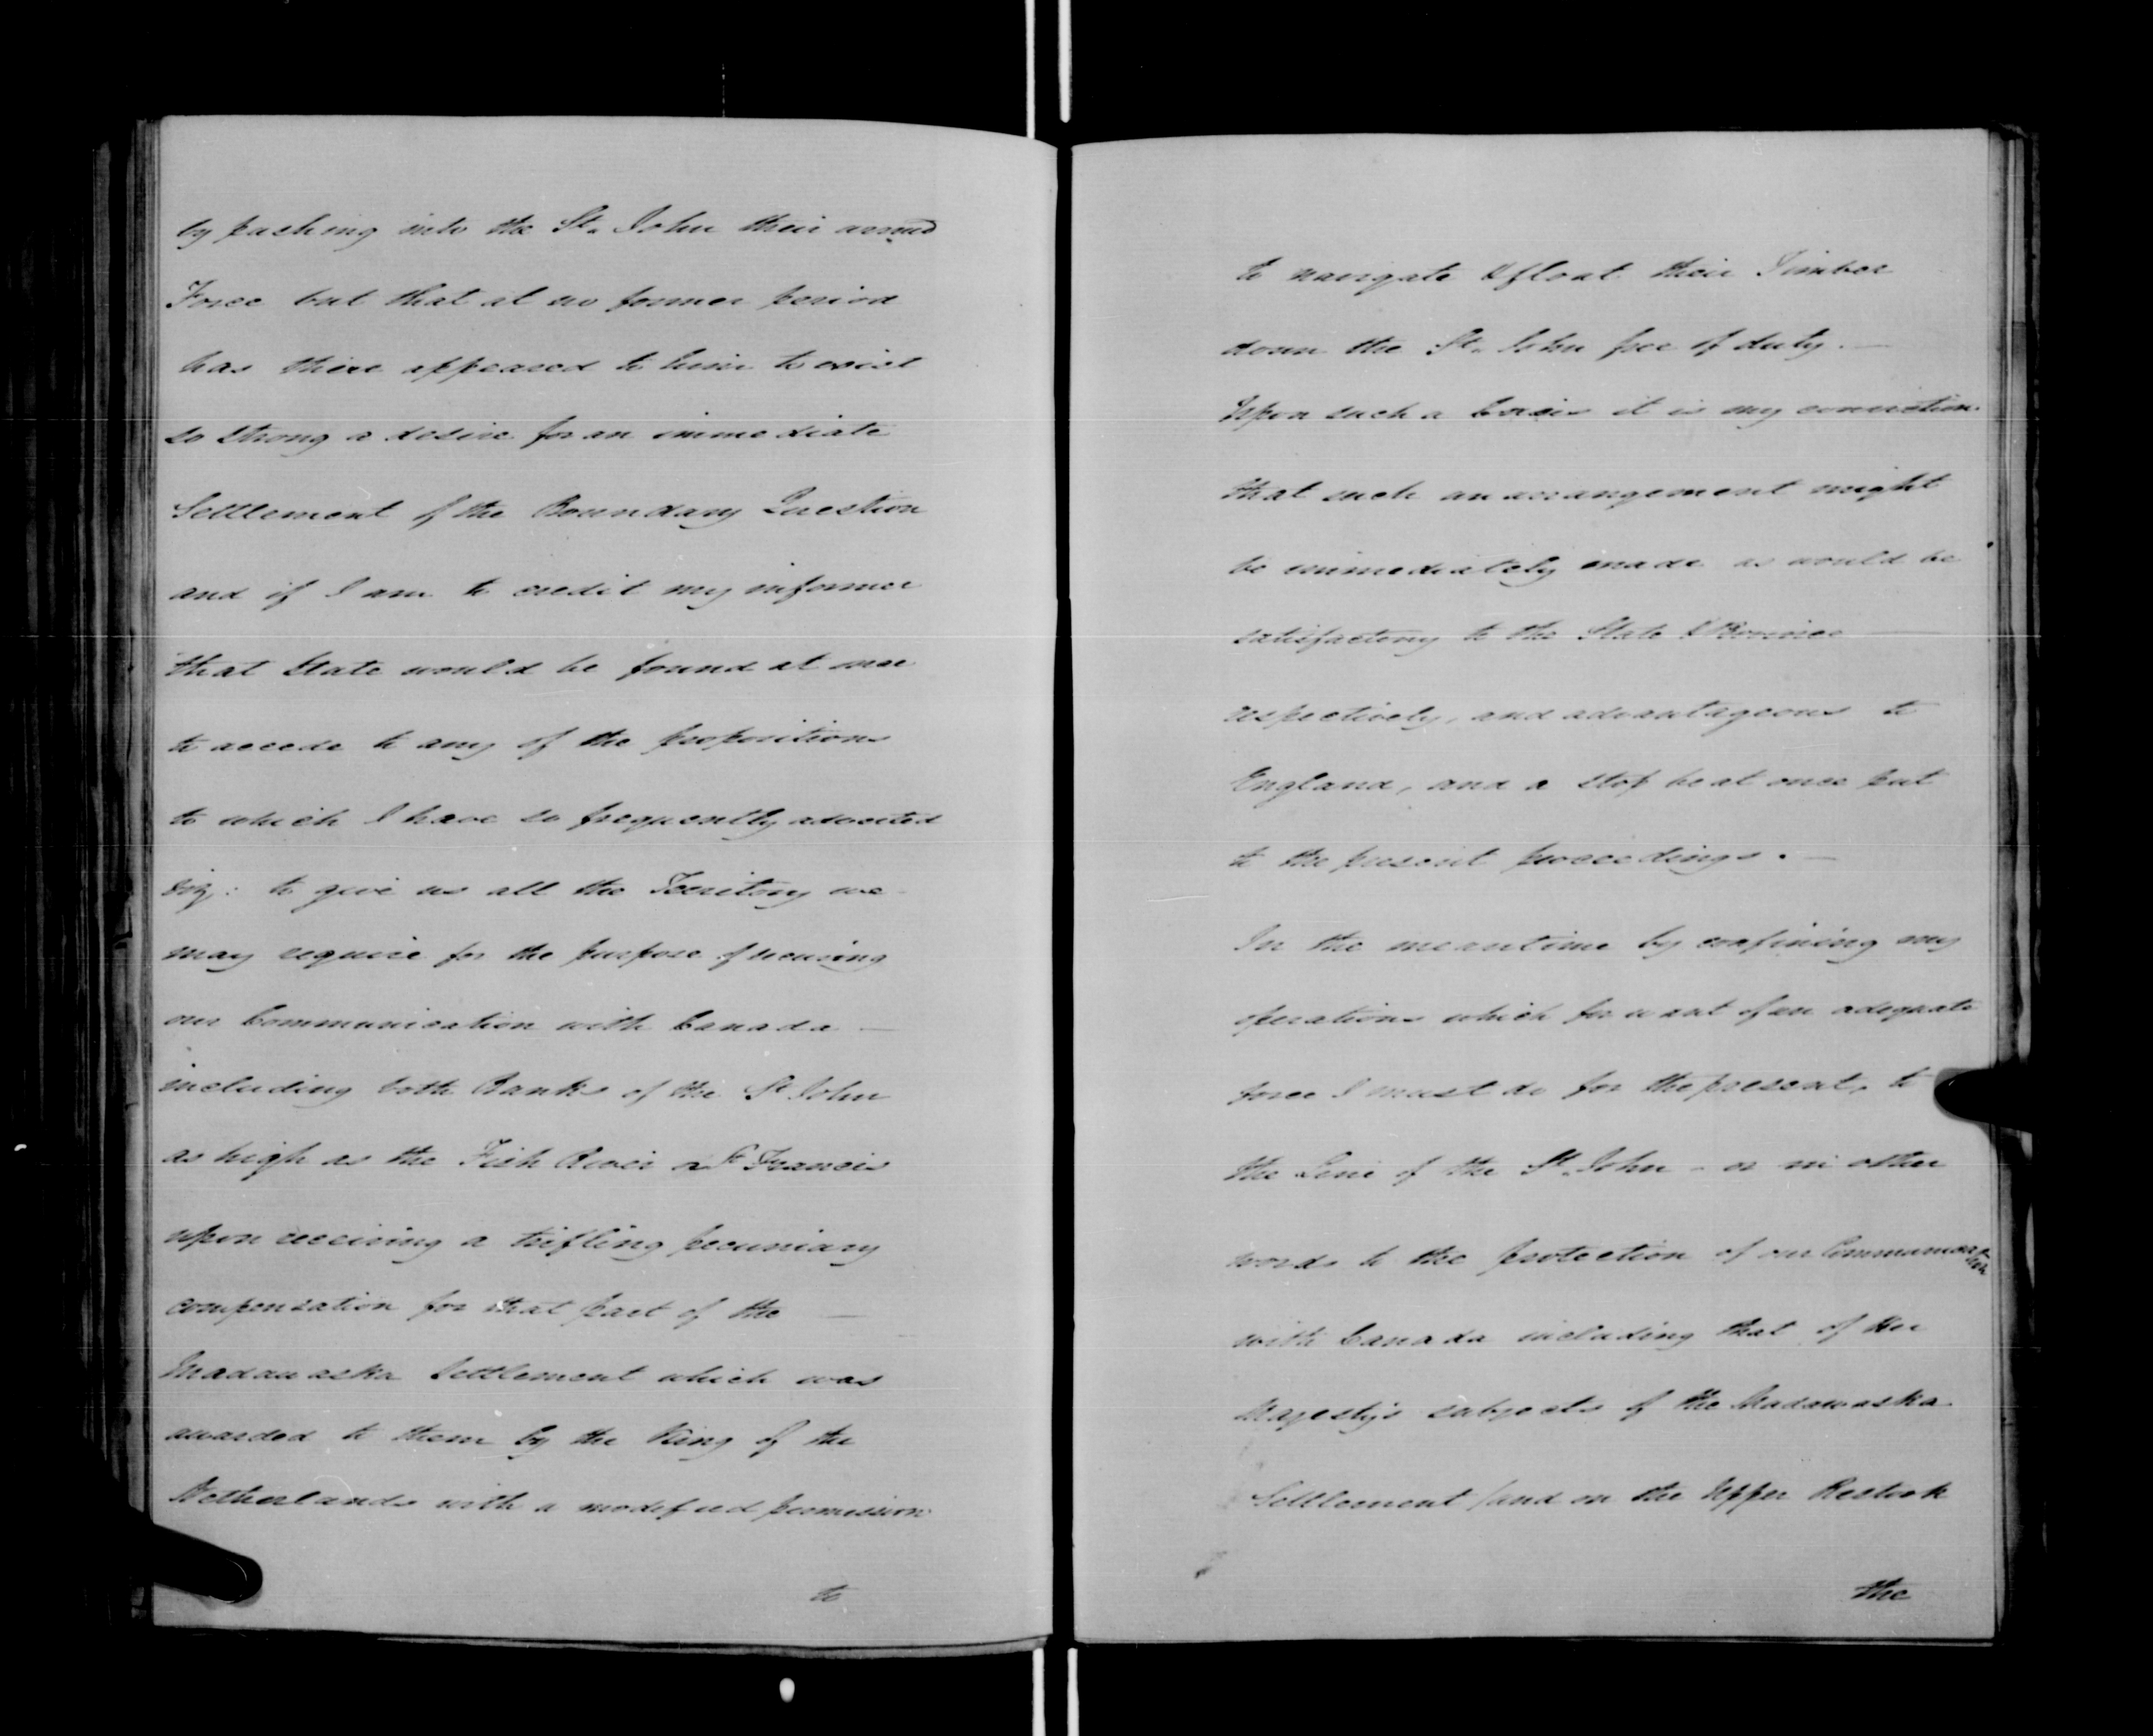 by pushing into the St. John their armed
Force but that at no former period
has there appeared to him to exist
so strong a desire for an immediate
Settlement of the Boundary Question
and if I am to credit my informer
that State would be found at once
to accede to any of the propositions
to which I have so frequently adverted
viz: to give us all the Territory we
may require for the purpose of securing
our Communication with Canada —
including both Banks of the St John
as high as the Fish River or St Francis
upon receiving a trifling pecuniary
compensation for that part of the —
Madawaska Settlement which was
awarded to them by the King of the
Netherlands with a modified permission
to
to navigate & float their Timber
down the St. John free of duty. —
Upon such a basis it is my conviction
that such an arrangement might
be immediately made as would be
satisfactory to the State & Province —
respectively, and advantageous to
England, and a stop be at once put
to the present proceedings. —
In the meantime by confining my
operations which for want of an adequate
force I must do for the present, to
the Line of the St. John - or in other
words to the protection of our Communication
with Canada including that of Her
Majesty's subjects of the Madawaska
Settlement (and on the Upper Restook
the